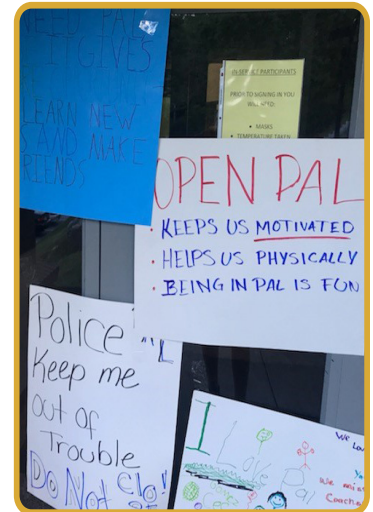 NEED PAL
IT GIVES
LEARN NEW
S AND MAKE
FRIENDS
IN-SERVICE PARTICIPANTS
PRIOR TO SIGNING IN YOU
WILL NEED:
• MASKS
• TEMPERATURE TAKEN
OPEN PAL
• KEEPS US MOTIVATED
• HELPS US PHYSICALLY
• BEING IN PAL IS FUN
Police
Keep me
out of
Trouble
DO NOT
I Love
Pal
We Lov
We miss
Coache